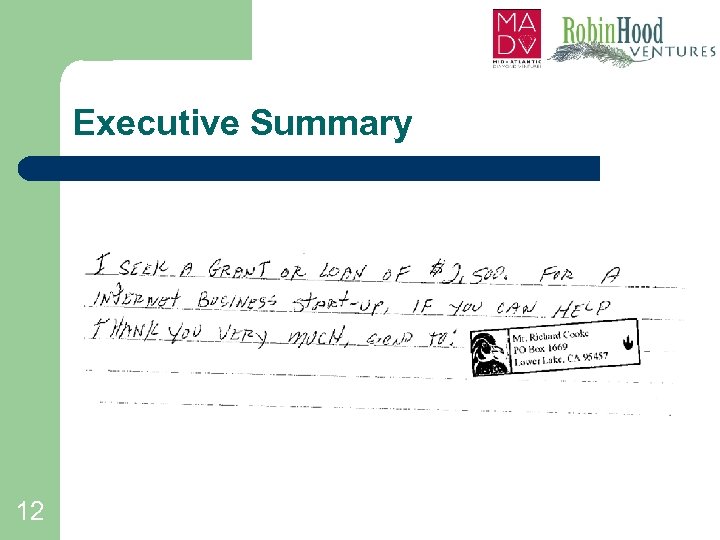 MADV
MID-ATLANTIC
DIAMOND VENTURES
Robin Hood
VENTURES
Executive Summary
I SEEK A GRANT OR LOAN OF $2,500. FOR A
INTERNET BUSINESS START-UP, IF YOU CAN HELP
THANK YOU VERY MUCH, SEND TO:
Mr. Richard Cooke
PO Box 1669
Lower Lake, CA 95457
12